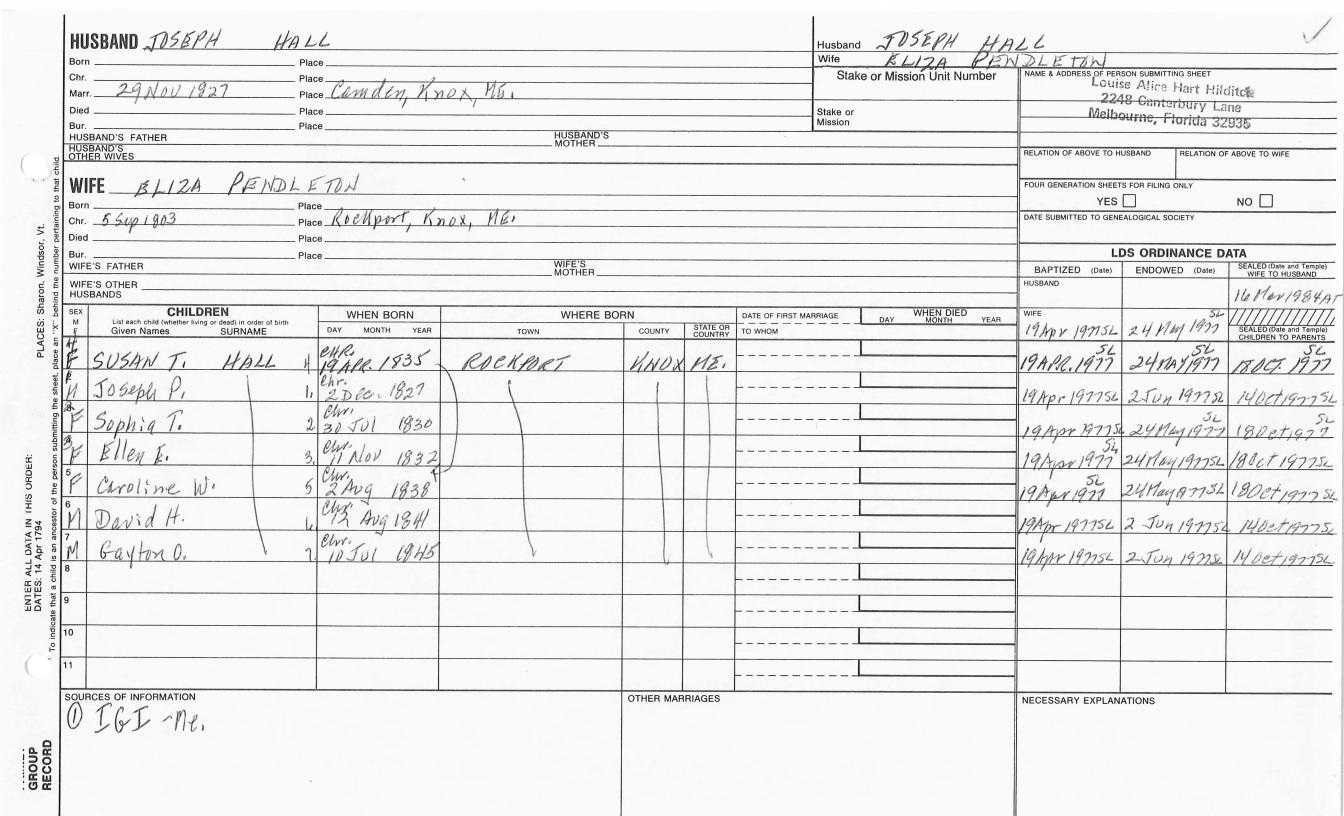 HUSBAND JOSEPH HALL
Born Place
Chr. Place
Marr. 29 NOV 1827 Place Camden, Knox, ME.
Died Place
Bur. Place
HUSBAND'S FATHER HUSBAND'S MOTHER
HUSBAND'S OTHER WIVES
WIFE ELIZA PENDLETON
Born Place
Chr. 5 Sep 1803 Place Rockport, Knox, ME.
Died Place
Bur. Place
WIFE'S FATHER WIFE'S MOTHER
WIFE'S OTHER HUSBANDS
Husband JOSEPH HALL
Wife ELIZA PENDLETON
Stake or Mission Unit Number
Stake or Mission
NAME & ADDRESS OF PERSON SUBMITTING SHEET
Louise Alice Hart Hilditch
2248 Canterbury Lane
Melbourne, Florida 32935
RELATION OF ABOVE TO HUSBAND RELATION OF ABOVE TO WIFE
FOUR GENERATION SHEETS FOR FILING ONLY
YES NO
DATE SUBMITTED TO GENEALOGICAL SOCIETY
LDS ORDINANCE DATA
BAPTIZED (Date) ENDOWED (Date) SEALED (Date and Temple) WIFE TO HUSBAND
HUSBAND 16 Mar 1984 AT
WIFE 19 Apr 1977 SL 24 May 1977 SL
SEALED (Date and Temple) CHILDREN TO PARENTS
SEX M F CHILDREN WHEN BORN WHERE BORN DATE OF FIRST MARRIAGE WHEN DIED
List each child (whether living or dead) in order of birth
Given Names SURNAME DAY MONTH YEAR TOWN COUNTY STATE OR COUNTRY TO WHOM DAY MONTH YEAR
F SUSAN T. HALL 4 CHR. 19 APR. 1835 ROCKPORT KNOX ME. 19 APR. 1977 SL 24 MAY 1977 SL 18 OCT. 1977 SL
M Joseph P. 1. Chr. 2 Dec. 1827 19 Apr 1977 SL 2 Jun 1977 SL 14 Oct 1977 SL
F Sophia T. 2 Chr. 30 Jul 1830 19 Apr 1977 SL 24 May 1977 SL 18 Oct 1977 SL
F Ellen E. 3. Chr. 11 Nov 1832 19 Apr 1977 SL 24 May 1977 SL 18 Oct 1977 SL
5 F Caroline W. 5 Chr. 2 Aug 1838 19 Apr 1977 SL 24 May 1977 SL 18 Oct 1977 SL
6 M David H. 6 Chr. 12 Aug 1841 19 Apr 1977 SL 2 Jun 1977 SL 14 Oct 1977 SL
7 M Gayton O. 7 Chr. 10 Jul 1845 19 Apr 1977 SL 2 Jun 1977 SL 14 Oct 1977 SL
8
9
10
11
SOURCES OF INFORMATION OTHER MARRIAGES NECESSARY EXPLANATIONS
① IGI -Me.
ENTER ALL DATA IN THIS ORDER:
DATES: 14 Apr 1794 PLACES: Sharon, Windsor, Vt.
To indicate that a child is an ancestor of the person submitting the sheet, place an "X" behind the number pertaining to that child.
GROUP
RECORD